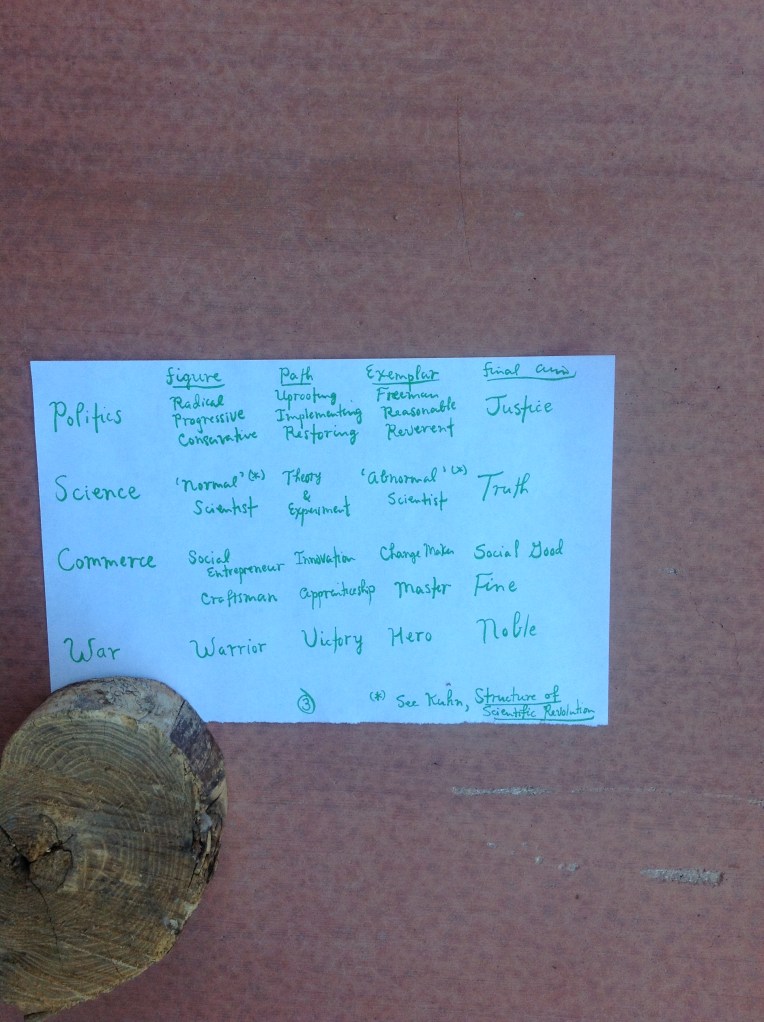 Figure Path Exemplar Final aim
Politics
Radical Uprooting Freeman
Progressive Implementing Reasonable Justice
Conservative Restoring Reverent
Science 'Normal' (*) Theory 'Abnormal' (*) Truth
Scientist & Experiment Scientist
Commerce Social Innovation Change Maker Social Good
Entrepreneur
Craftsman Apprenticeship Master Fine
War Warrior Victory Hero Noble
3 (*) See Kuhn, Structure of
Scientific Revolution